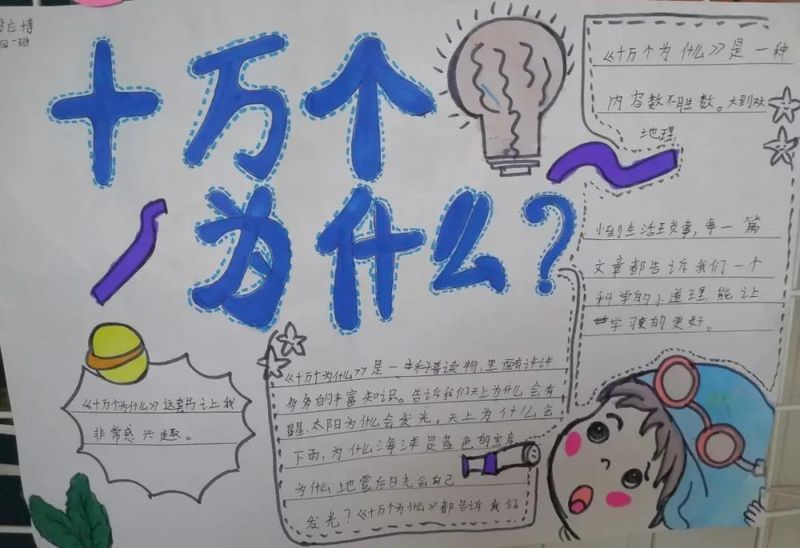 应博
四一班
十万个
为什么?
《十万个为什么》是一种
内容数不胜数。大到
地理,
小到生活琐事,每一篇
文章都告诉我们一个
科学的小道理,能让
学习变的更好。
《十万个为什么》这套书让我
非常感兴趣。
《十万个为什么》是一本科普读物,里面有许许
多多的丰富知识。告诉我们天上为什么会有
星,太阳为什么会发光。天上为什么会
下雨,为什么海洋是蓝色的
为什么地震后 会自己
发光?《十万个为什么》都告诉我们